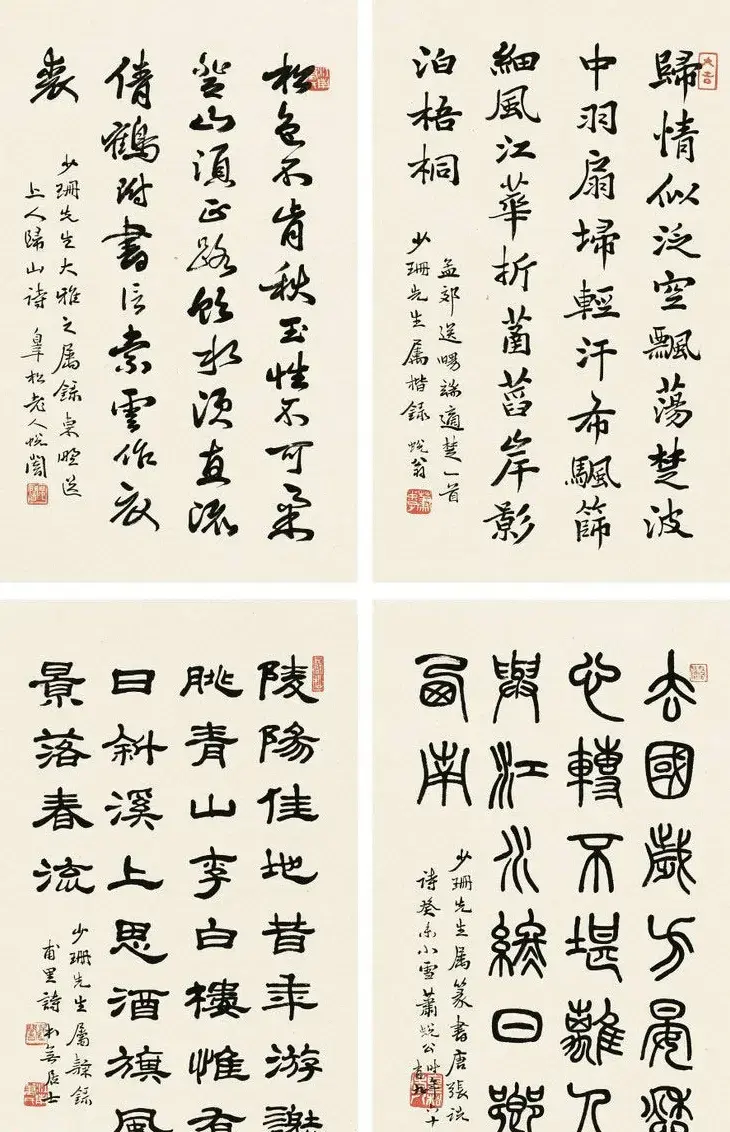 歸情似泛空飄蕩楚波
中羽扇埽輕汗布颿篩
細風江華折菡萏岸影
泊梧桐
孟郊送暢端適楚一首
少珊先生屬楷錄 蛻翁
松色不肯秋玉性不可柔
登山須正路飲水須直流
倩鶴附書信索雲作衣
裳
少珊先生大雅之屬錄東野送
上人歸山詩 皋松老人蛻闇
去國歲方晏愁
心轉不堪離人
與江水終日鄉
西南
少珊先生屬篆書唐張說
詩癸未小雪蕭蛻公時年六十
陵陽佳地昔年游謝
朓青山李白樓惟有
日斜溪上思酒旗風
景落春流
少珊先生屬隸錄
甫里詩本無居士